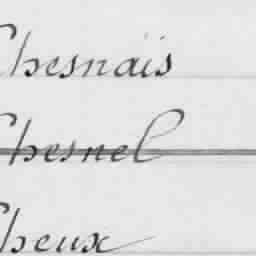 Chesnaïs
Chesnel
Cheux